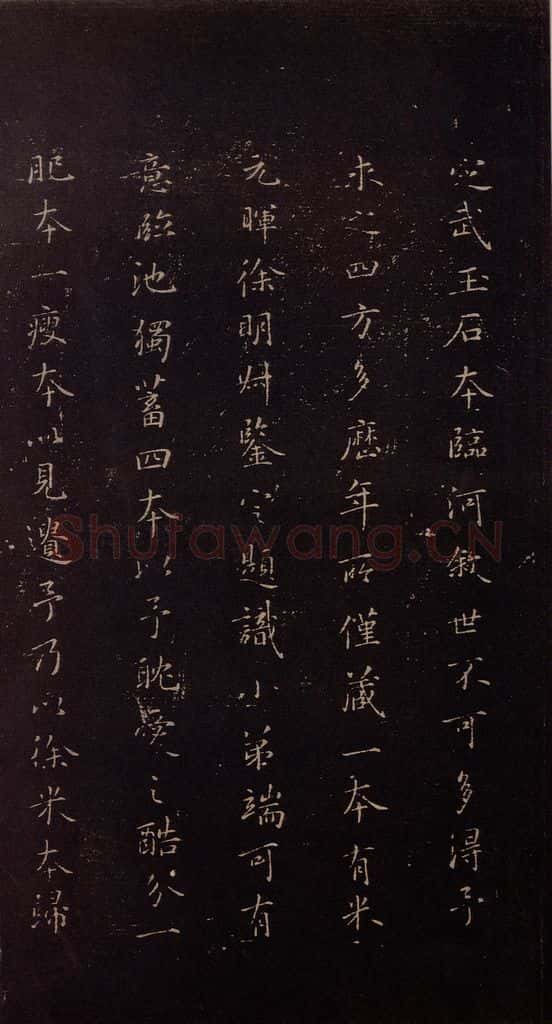 定武玉石本臨河敘世不可多得予
求之四方多歷年所僅藏一本有米
元暉徐明叔鑒定題識小弟端可有
意臨池獨蓄四本以予耽愛之酷分一
肥本一瘦本以見遺予乃以徐米本歸
Shufawang.CN